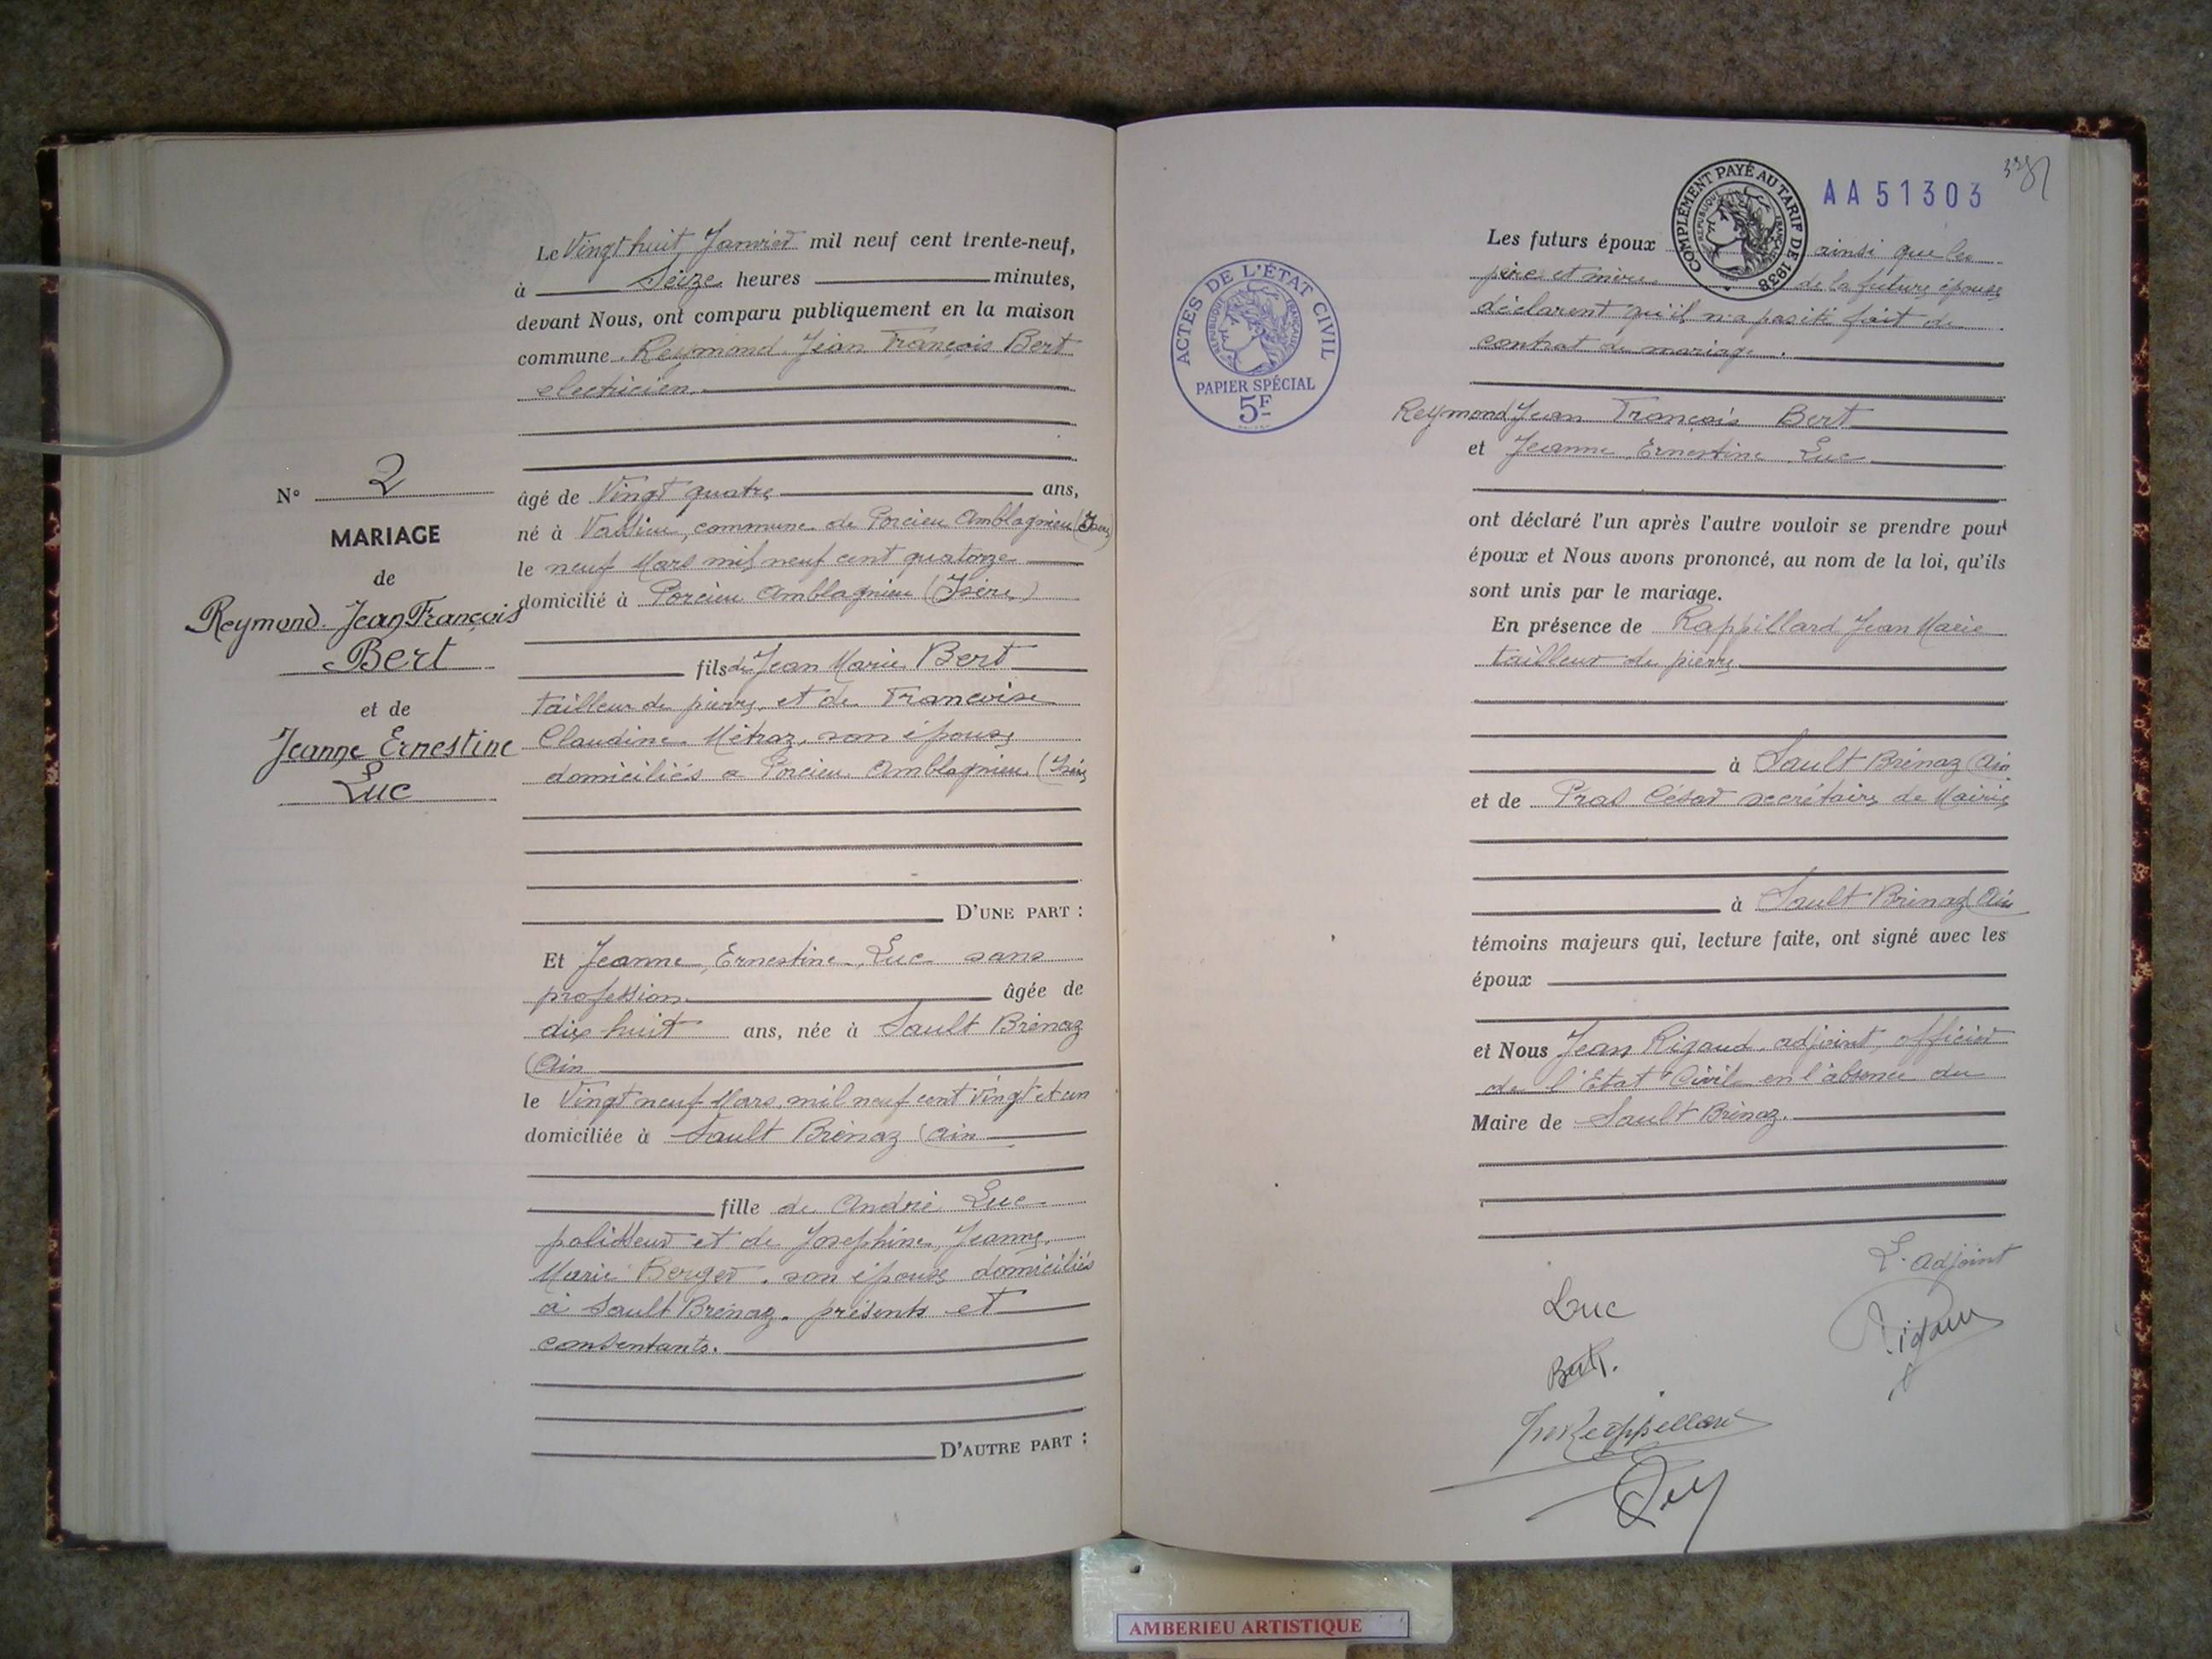 Le Vingt huit Janvier mil neuf cent trente-neuf,
à Seize heures minutes,
devant Nous, ont comparu publiquement en la maison
commune Reymond Jean François Bert
electricien.
N° 2
MARIAGE
de
Reymond Jean François
Bert
et de
Jeanne Ernestine
Luc
âgé de Vingt quatre ans,
né à commune de Porcieu Amblagnieu (Isère)
le neuf Mars mil neuf cent quatorze
domicilié à Porcieu Amblagnieu (Isère)
fils de Jean Marie Bert
tailleur de pierre, et de Francoise
Claudine Métraz, son épouse
domiciliés a Porcieu Amblagnieu (Isère
D'UNE PART :
Et Jeanne, Ernestine, Luc sans
profession âgée de
dix huit ans, née à Sault Brénaz
(Ain
le Vingt neuf Mars, mil neuf cent vingt et un
domiciliée à Sault Brénaz (Ain
fille de André Luc
polisseur et de Josephine, Jeanne,
Marie Berger, son épouse domiciliés
à Sault Brénaz. présents et
consentants.
D'AUTRE PART :
AA 51303
COMPLÉMENT PAYÉ AU TARIF DE 1938
RÉPUBLIQUE FRANÇAISE
ACTES DE L'ÉTAT CIVIL
RÉPUBLIQUE FRANÇAISE
PAPIER SPÉCIAL
5F
Les futurs époux ainsi que les
père et mère de la future épouse
déclarent qu'il n'a pas été fait de
contrat de mariage.
Reymond Jean François Bert
et Jeanne, Ernestine Luc
ont déclaré l'un après l'autre vouloir se prendre pour
époux et Nous avons prononcé, au nom de la loi, qu'ils
sont unis par le mariage.
En présence de Rappillard Jean Marie
tailleur de pierre
à Sault Brénaz (Ain
et de Pras César secrétaire de Mairie
à Sault Brénaz (Ain
témoins majeurs qui, lecture faite, ont signé avec les
époux
et Nous Jean Rigaud, adjoint, officier
de l'Etat Civil en l'absence du
Maire de Sault Brénaz.
L'adjoint
Luc
Rigaud
Bert.
AMBERIEU ARTISTIQUE